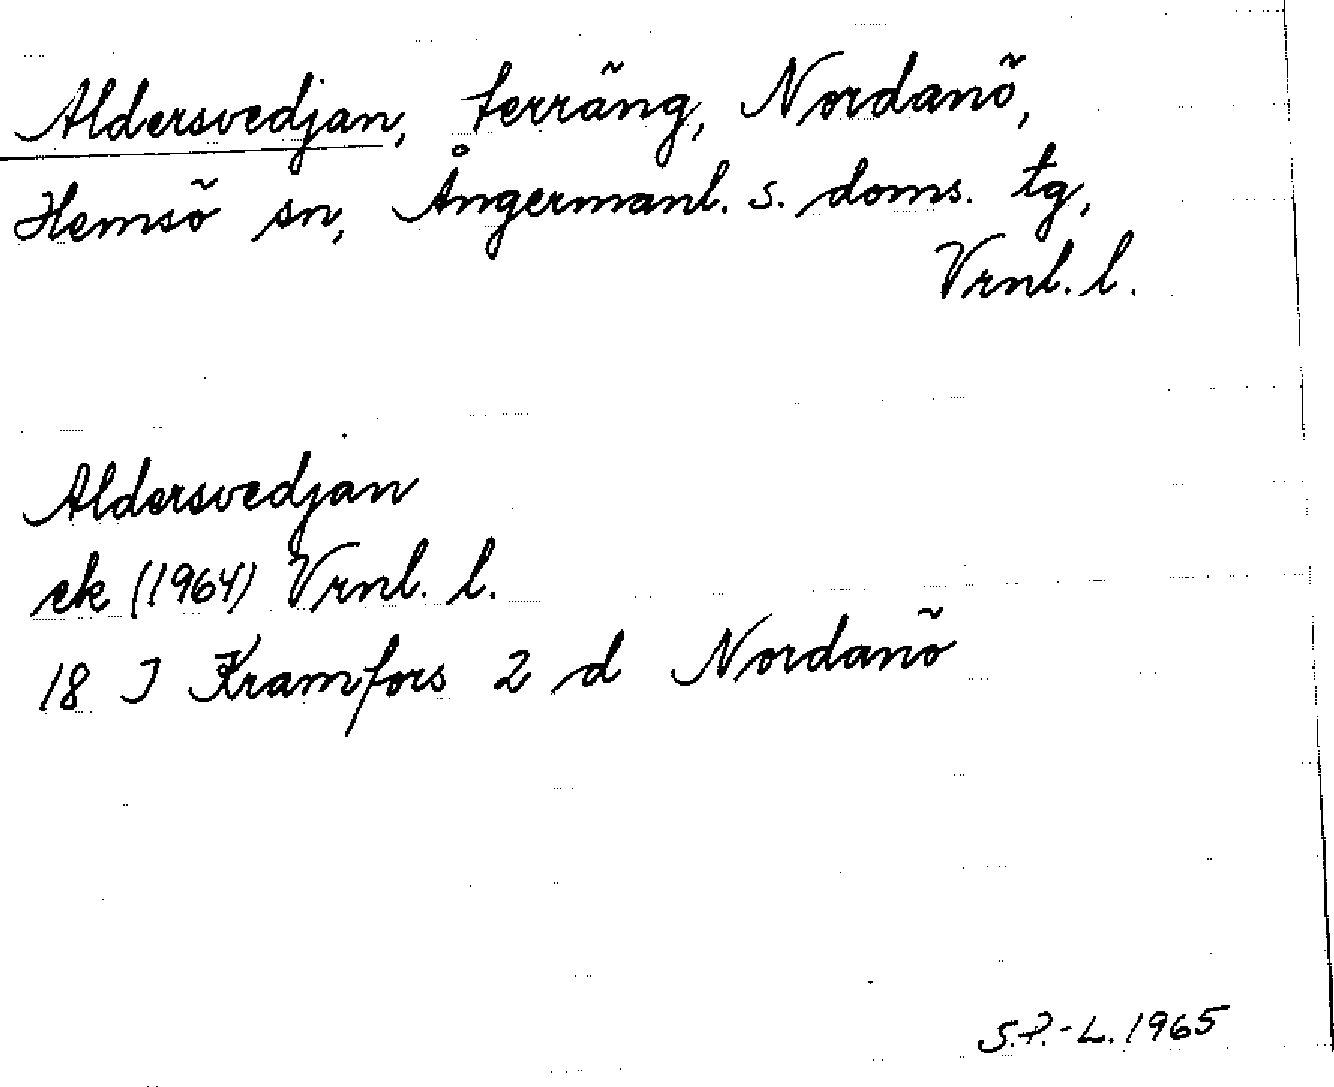 Aldersvedjan, terräng, Nordanö,
Hemsö sn, Ångermanl. s. doms. tg,
Vrnl. l.
Aldersvedjan
ek (1964) Vrnl. l.
18 J Kramfors 2 d Nordanö
S.P.-L. 1965